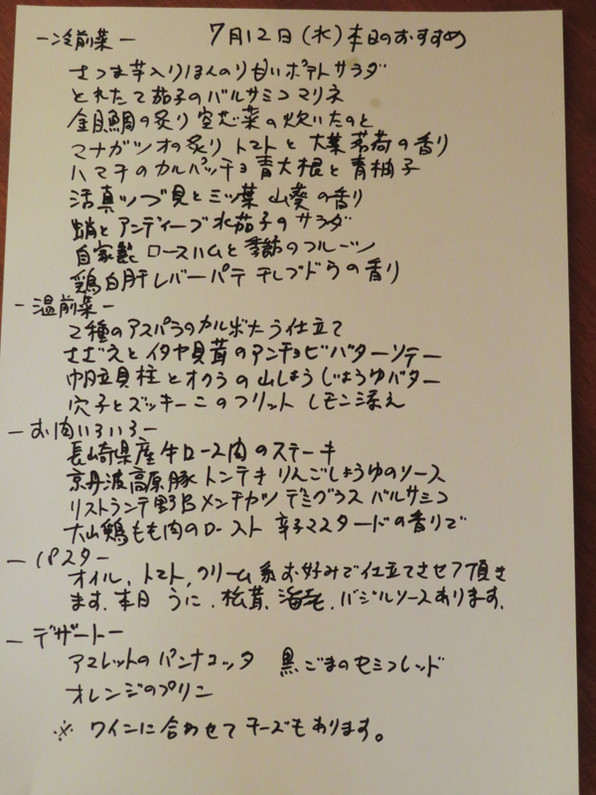 7月12日(水)本日のおすすめ
ー冷前菜ー
さつま芋入りほんのり甘いポテトサラダ
とれたて茄子のバルサミコマリネ
金目鯛の炙り 空芯菜の炊いたのと
マナガツオの炙り トマトと大葉茗荷の香り
ハマチのカルパッチョ 青大根と青柚子
活真ツブ貝と三ッ葉 山葵の香り
蛸とアンディーブ 水茄子のサラダ
自家製 ロースハムと季節のフルーツ
鶏白肝レバーパテ 干しブドウの香り
ー温前菜ー
2種のアスパラのカルボナーラ仕立て
さざえとイタヤ貝茸のアンチョビバターソテー
帆立貝柱とオクラの山しょうじょうゆバター
穴子とズッキーニのフリット レモン添え
ーお肉いろいろー
長崎県産牛ロース肉のステーキ
京丹波高原豚 トンテキ りんごしょうゆのソース
リストランテ野呂 メンチカツ デミグラス バルサミコ
大山鶏もも肉のロースト 辛子マスタードの香りで
ーパスター
オイル、トマト、クリーム系お好みで仕立てさせて頂き
ます。本日 うに、松茸、海老、バジルソースあります。
ーデザートー
アマレットのパンナコッタ 黒ごまのセミフレッド
オレンジのプリン
※ ワインに合わせてチーズもあります。